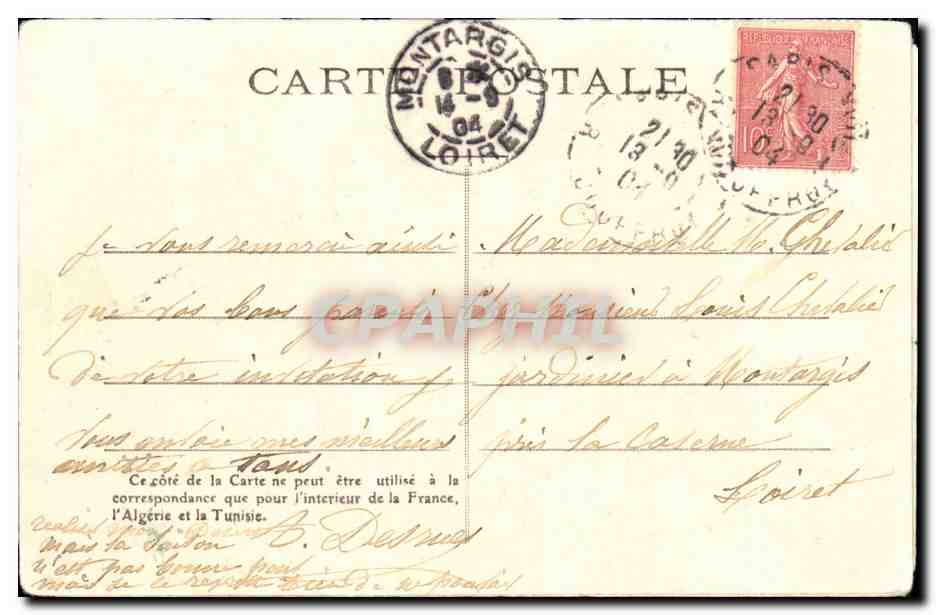 CARTE POSTALE
MONTARGIS
8
14 - 9
04
LOIRET
PARIS
21 30
13 - 9
04
REPUBLIQUE FRANÇAISE
10
PARIS
21 30
13 - 9
04
CPAPHIL
je vous remercie ainsi
que vos bons parents
de votre invitation je
vous envoie mes meilleurs
amitiés a tous.
Mademoiselle M. Chevalié
Chez Monsieur Louis Chevalié
jardinier à Montargis
près la Caserne
Loiret
Ce côté de la Carte ne peut être utilisé à la
correspondance que pour l'interieur de la France,
l'Algérie et la Tunisie.
Desrues
mais la saison
n'est pas bonne pour
moi de ce